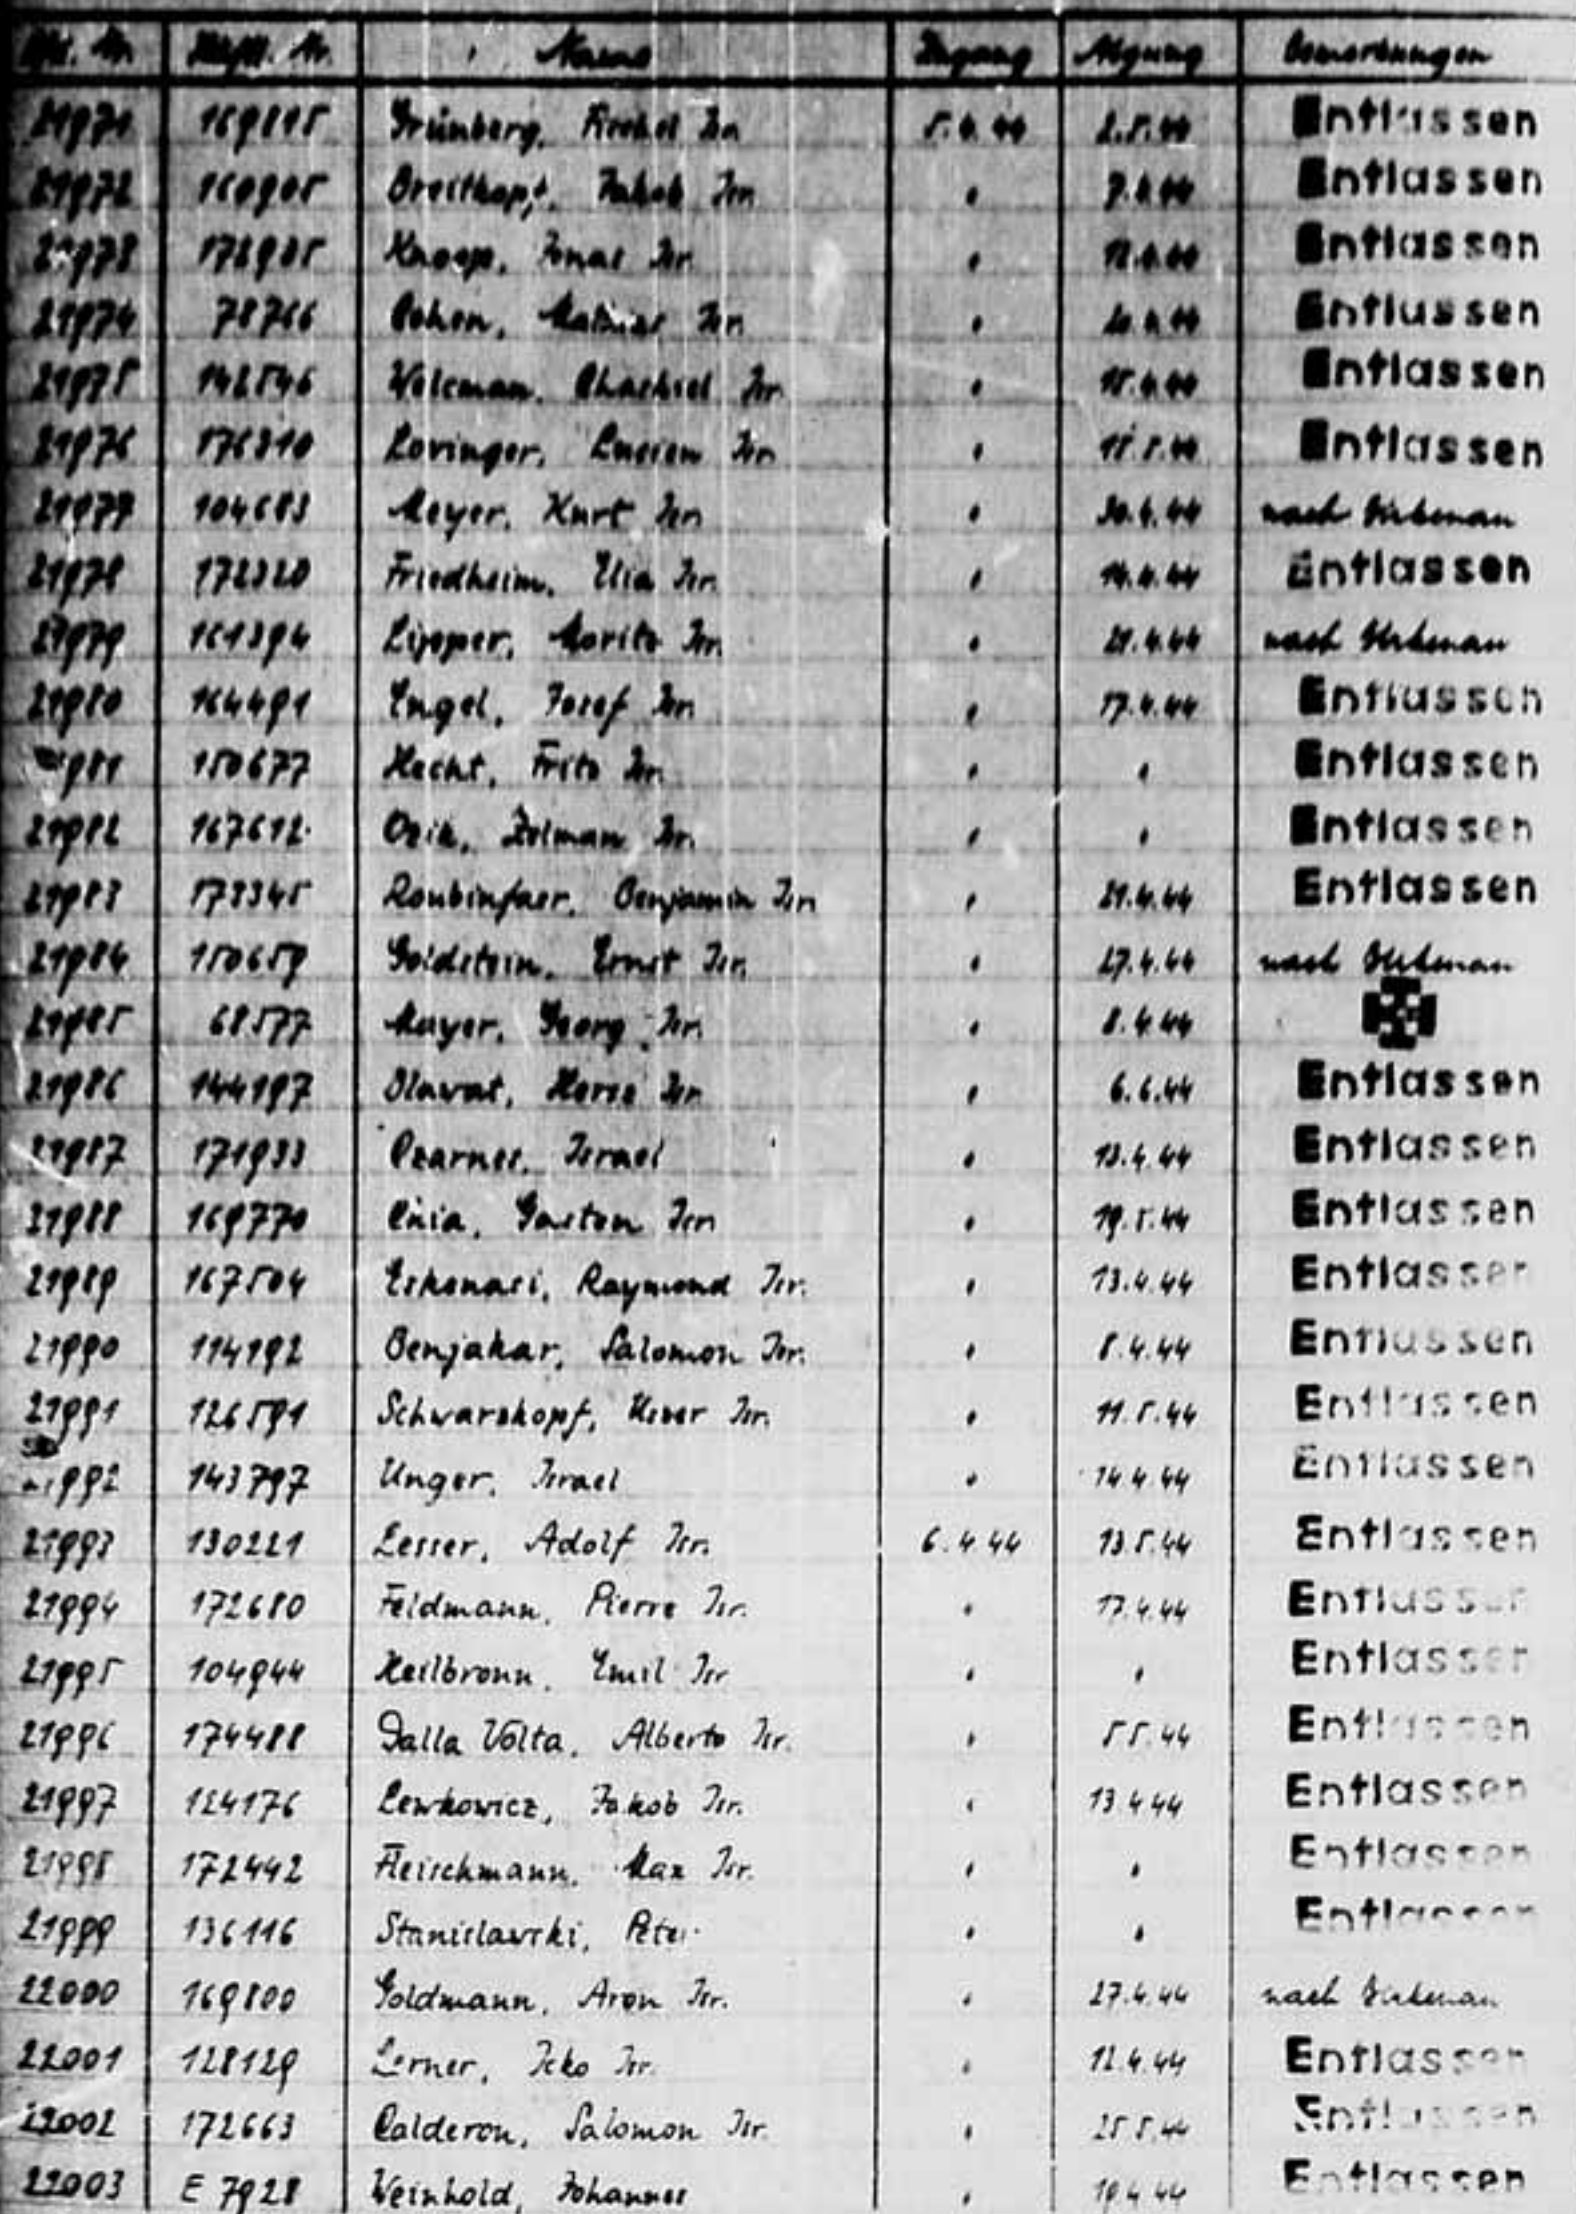 Lfd. Nr. Häftl. Nr. Name Zugang Abgang Bemerkungen
21971 169815 Grünberg, Isr. 5.4.44 2.5.44 Entlassen
21972 Breitkopf, Jakob Isr. " 7.4.44 Entlassen
21973 172935 Knoop, Jonas Isr. " Entlassen
21974 78766 Cohen, Isr. " Entlassen
21975 142546 Isr. " 15.4.44 Entlassen
21976 176310 Lovinger, Lucien Isr. " Entlassen
21977 104683 Meyer, Kurt Isr. " 30.4.44 nach Birkenau
21978 172320 Friedheim, Elia Isr. " 14.4.44 Entlassen
21979 161394 Lipper, Moritz Isr. " 21.4.44 nach Birkenau
21980 164491 Engel, Josef Isr. " 17.4.44 Entlassen
21981 150677 Hecht, Fritz Isr. " " Entlassen
21982 167612 Ozik, Isr. " " Entlassen
21983 173345 Benjamin Isr. " 21.4.44 Entlassen
21984 150659 Goldstein, Ernst Isr. " 27.4.44 nach Birkenau
21985 68577 Mayer, Georg Isr. " 8.4.44
21986 144197 Olawat, Isr. " 6.6.44 Entlassen
21987 171933 Israel " 13.4.44 Entlassen
21988 169770 Gaston Isr. " 19.5.44 Entlassen
21989 167504 Eskenasi, Raymond Isr. " 13.4.44 Entlassen
21990 114192 Benjakar, Salomon Isr. " 8.4.44 Entlassen
21991 126591 Schwarzkopf, Isr. " 11.5.44 Entlassen
21992 143797 Unger, Israel " 14.4.44 Entlassen
21993 130221 Lesser, Adolf Isr. 6.4.44 13.5.44 Entlassen
21994 172680 Feldmann, Pierre Isr. " 17.4.44 Entlassen
21995 104944 Heilbronn, Emil Isr. " " Entlassen
21996 174488 Dalla Volta, Alberto Isr. " 5.5.44 Entlassen
21997 124176 Lewkowicz, Jakob Isr. " 13.4.44 Entlassen
21998 172442 Fleischmann, Max Isr. " " Entlassen
21999 136116 Stanislawski, Peter " " Entlassen
22000 169800 Goldmann, Aron Isr. " 27.4.44 nach Birkenau
22001 128129 Lerner, Icko Isr. " 12.4.44 Entlassen
22002 172663 Calderon, Salomon Isr. " 25.5.44 Entlassen
22003 E 7928 Weinhold, Johannes " Entlassen